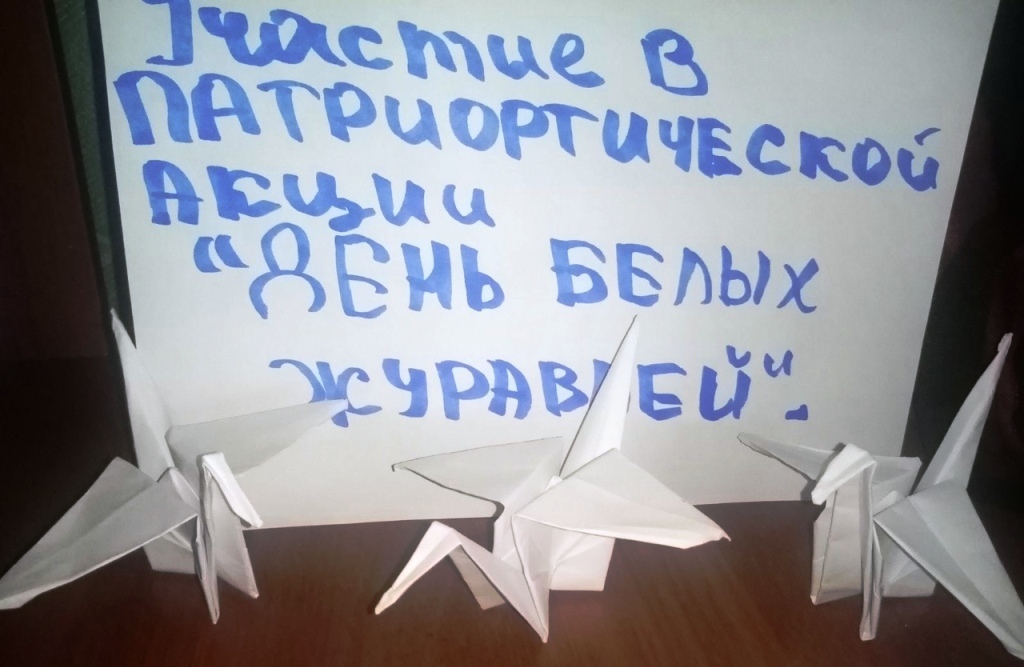 Участие в
ПАТРИОРТИЧЕСКОЙ
АКЦИИ
"ДЕНЬ БЕЛЫХ
ЖУРАВЛЕЙ".